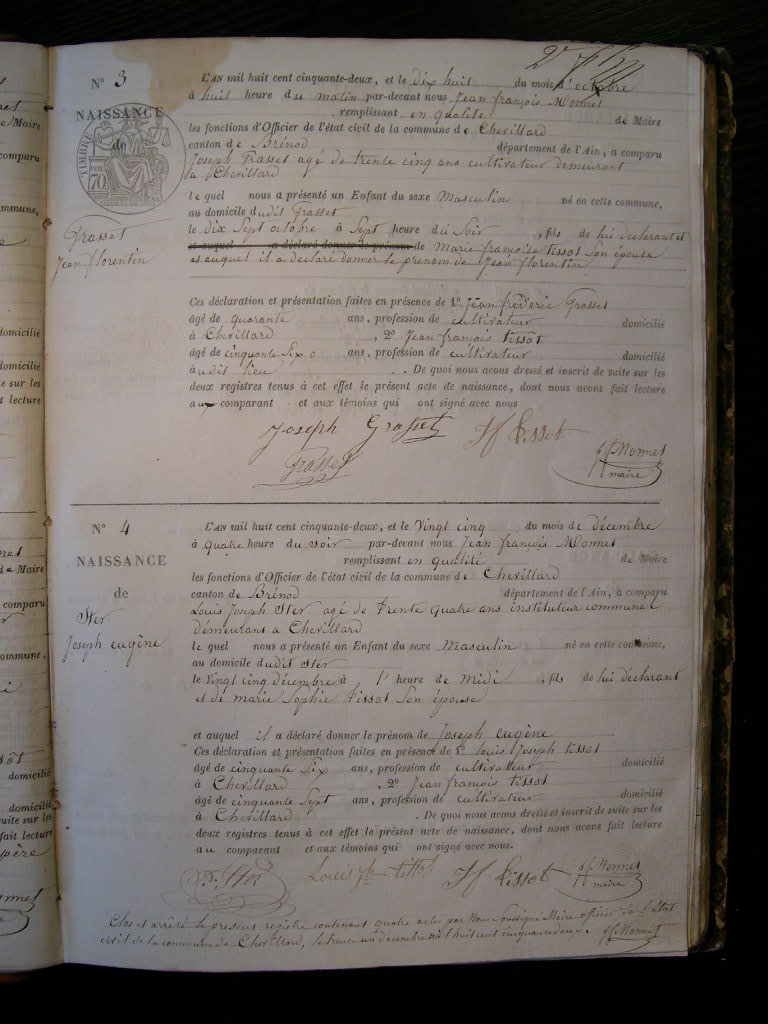 N° 3
NAISSANCE
de
TIMBRE
70
Grasset
Jean florentin
L'AN mil huit cent cinquante-deux, et le dix huit du mois d'octobre
à huit heure du matin par-devant nous Jean françois Monnet
remplissant en qualité de Maire
les fonctions d'Officier de l'état civil de la commune de Chevillard
canton de Brénod département de l'Ain, à comparu
Joseph Grasset agé de trente cinq ans cultivateur demeurant
a Chevillard
le quel nous a présenté un Enfant du sexe Masculin né en cette commune,
au domicile dudit Grasset
le dix Sept octobre à Sept heure du Soir, fils de lui declarant et
et auquel a déclaré donner le prénom de Marie françoise tissot Son épouse
et auquel il a declaré donner le prenom de Jean florentin
Ces déclaration et présentation faites en présence de 1° Jean frederic Grasset
âgé de quarante ans, profession de cultivateur domicilié
à Chevillard, 2° Jean françois tissot
âgé de cinquante Six ans, profession de cultivateur domicilié
audit lieu. De quoi nous avons dressé et inscrit de suite sur les
deux registres tenus à cet effet le présent acte de naissance, dont nous avons fait lecture
au comparant et aux témoins qui ont signé avec nous
Joseph Grasset Jf tissot
Grasset
jf Monnet
maire
N° 4
NAISSANCE
de
Ster
Joseph eugène
L'AN mil huit cent cinquante-deux, et le Vingt cinq du mois de décembre
à quatre heure du soir par-devant nous Jean françois Monnet
remplissant en qualité de Maire
les fonctions d'Officier de l'état civil de la commune de Chevillard
canton de Brénod département de l'Ain, à comparu
Louis Joseph Ster agé de trente quatre ans instituteur communal
demeurant a Chevillard
le quel nous a présenté un Enfant du sexe Masculin né en cette commune,
au domicile dudit Ster
le Vingt cinq décembre à l' heure de midi, fils de lui déclarant
et de marie Sophie tissot Son épouse
et auquel il a déclaré donner le prénom de Joseph eugène
Ces déclaration et présentation faites en présence de 1° Louis Joseph tissot
âgé de cinquante Six ans, profession de cultivateur domicilié
à Chevillard, 2° Jean françois tissot
âgé de cinquante Sept ans, profession de cultivateur domicilié
à Chevillard. De quoi nous avons dressé et inscrit de suite sur les
deux registres tenus à cet effet le présent acte de naissance, dont nous avons fait lecture
au comparant et aux témoins qui ont signé avec nous.
Louis Jh tissot Jf tissot jf Monnet
maire
Clos et arrêté le present registre contenant quatre actes par Nous Soussigné Maire officier de l'état
civil de la commune de Chevillard, le trente un decembre mil huit cent cinquante deux. jf Monnet